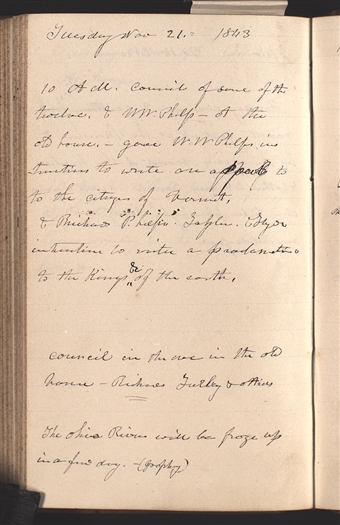 Tuesday Nov 21. 1843
10 A M. council of some of the
twelve. & W W. Phelps – at the
old house. – gave W. W. Phelps in
structions to write an appeal to
to the citizens of Vermont,
& Richards Hyde
instruction to write a proclamation
to the Kings &c of the earth,
council in the eve in the old
house – Richards Turley & others
The Ohio River will be froze up
in a few days. – (prophcy)